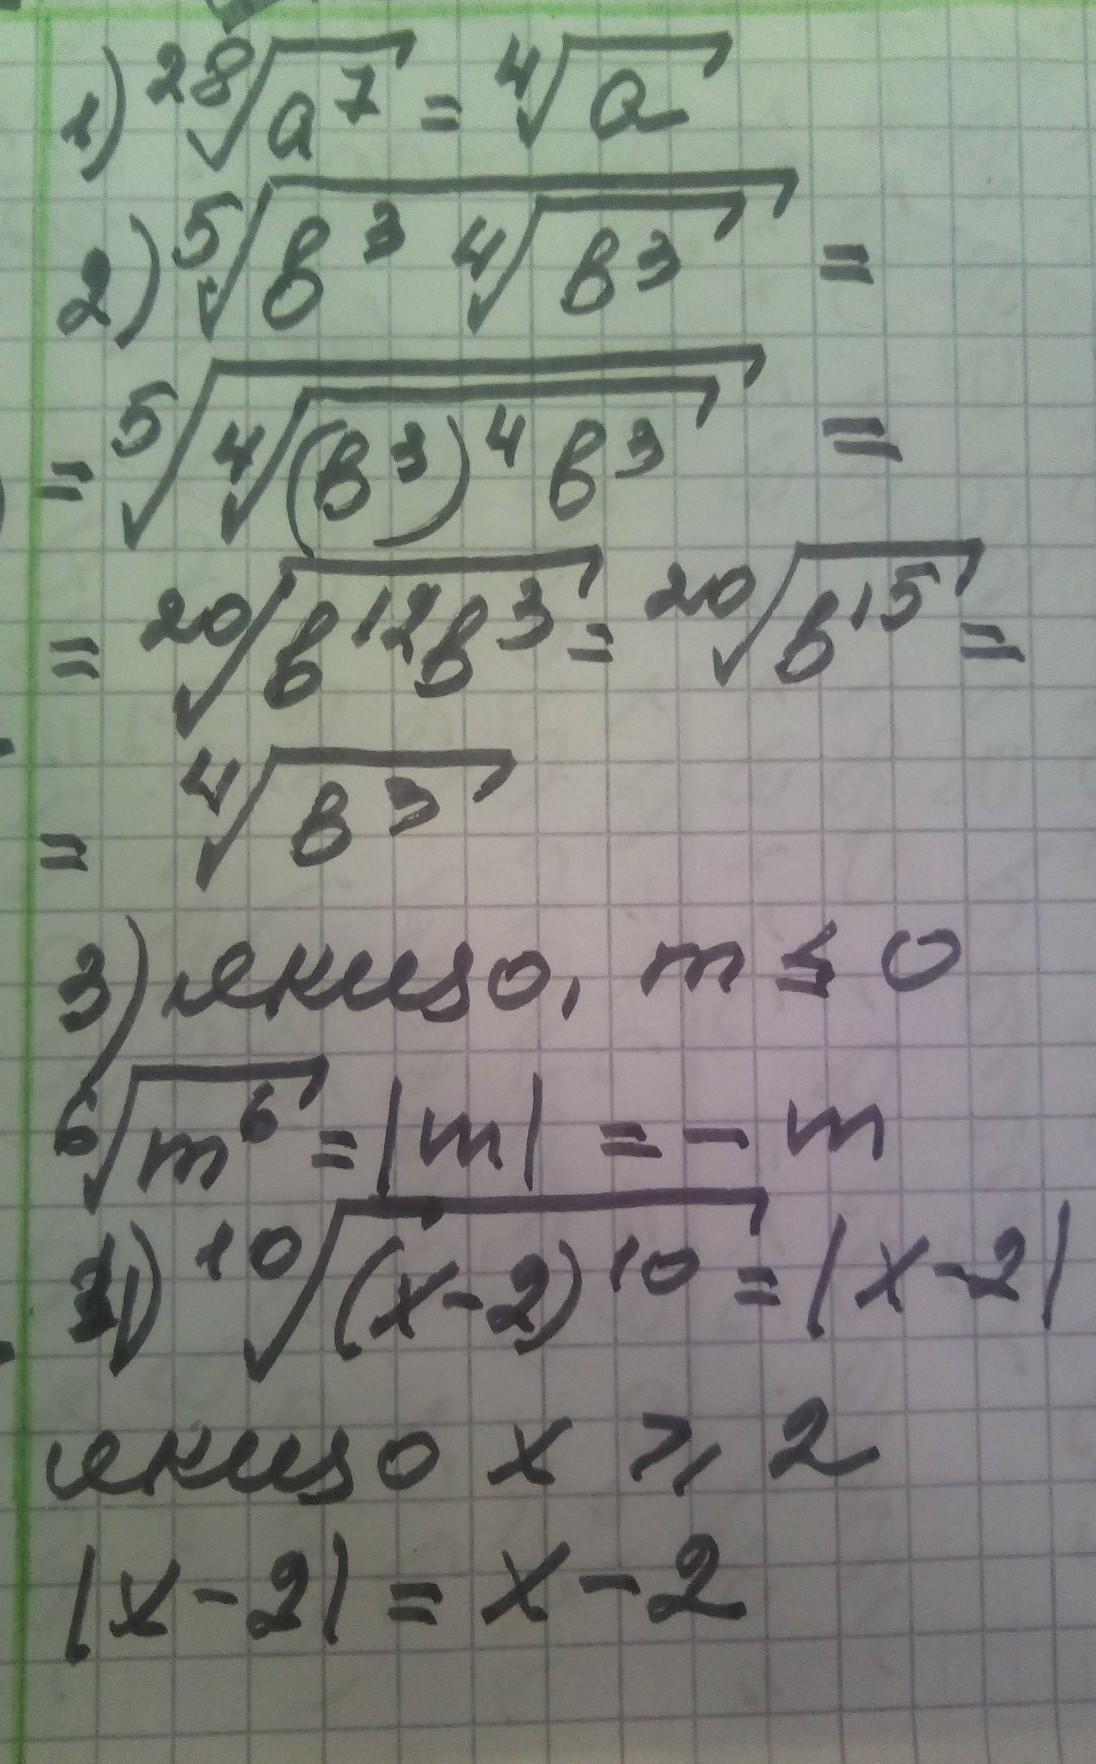 1) ²⁸√a⁷ = ⁴√a
2) ⁵√(в³ ⁴√в³) =
= ⁵√(⁴√((в³)⁴ в³)) =
= ²⁰√(в¹²в³) = ²⁰√в¹⁵ =
= ⁴√в³
3) якщо, m ≤ 0
⁶√m⁶ = |m| = - m
4) ¹⁰√(x-2)¹⁰ = |x-2|
якщо x ≥ 2
|x-2| = x-2